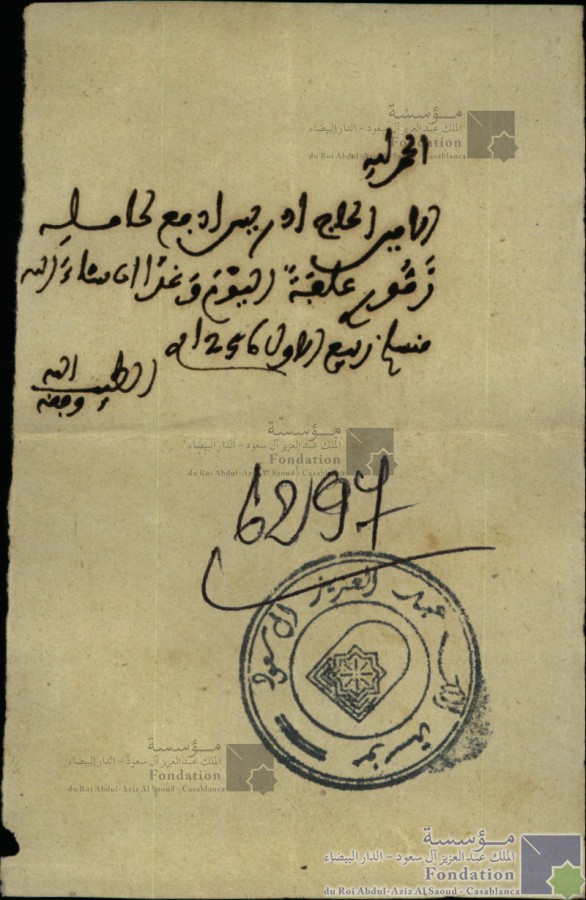 مؤسسة
الملك عبد العزيز آل سعود - الدار البيضاء
Fondation
du Roi Abdul-Aziz Al Saoud - Casablanca
الحمد لله
الامين الحاج ادريس ادفع لحامله
علفة اليوم وغدا ان شاء الله
ربيع الاول 1256
الطيب وفقه الله
مؤسسة
الملك عبد العزيز آل سعود - الدار البيضاء
Fondation
du Roi Abdul-Aziz Al Saoud - Casablanca
62197
مؤسسة الملك عبد العزيز آل سعود
مؤسسة
الملك عبد العزيز آل سعود - الدار البيضاء
Fondation
du Roi Abdul-Aziz Al Saoud - Casablanca
مؤسسة
الملك عبد العزيز آل سعود - الدار البيضاء
Fondation
du Roi Abdul-Aziz Al Saoud - Casablanca